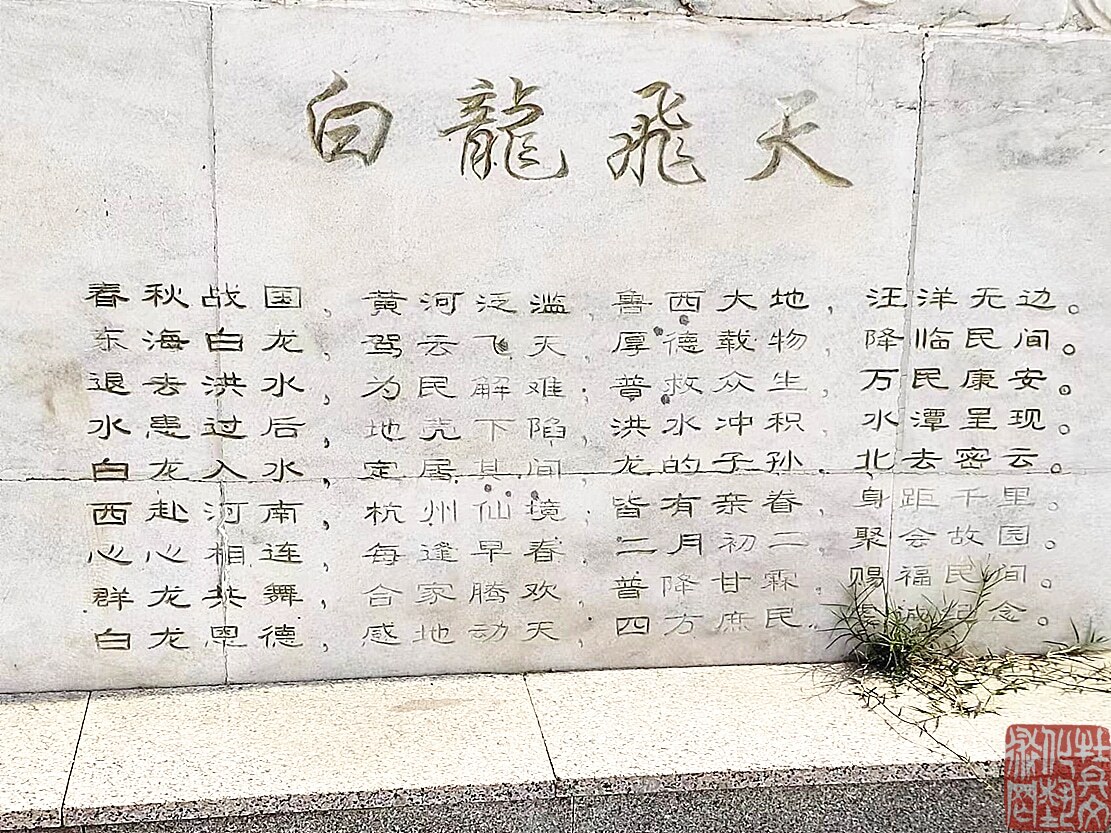 白龍飛天
春秋战国，黄河泛滥，鲁西大地，汪洋无边。
东海白龙，驾云飞天，厚德载物，降临民间。
退去洪水，为民解难；普救众生，万民康安。
水患过后，地壳下陷，洪水冲积，水潭呈现。
白龙入水，定居其间，龙的子孙，北去密云。
西赴河南，杭州仙境；皆有亲眷，身距千里。
心心相连，每逢早春，二月初二，聚会故园。
群龙共舞，合家腾欢，普降甘霖，赐福民间。
白龙恩德，感地动天，四方庶民，诚纪念。